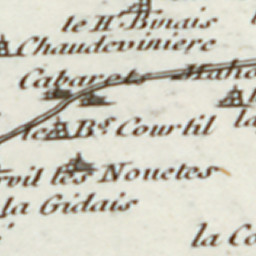 le Ht. Binais
Chaudeviniere
Cabarets
le Bs. Courtil
les Nouetes
la Gidais
la Co